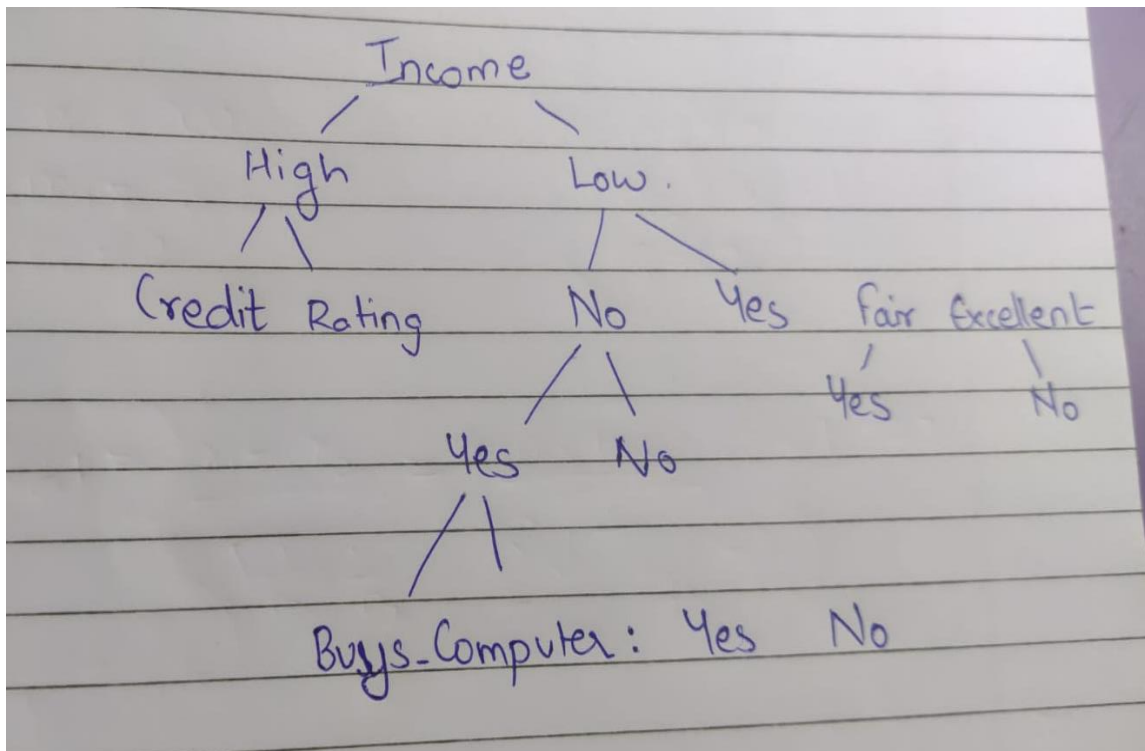 Income
High Low.
Credit Rating No Yes fair Excellent
Yes No
Yes No
Buys_Computer: Yes No